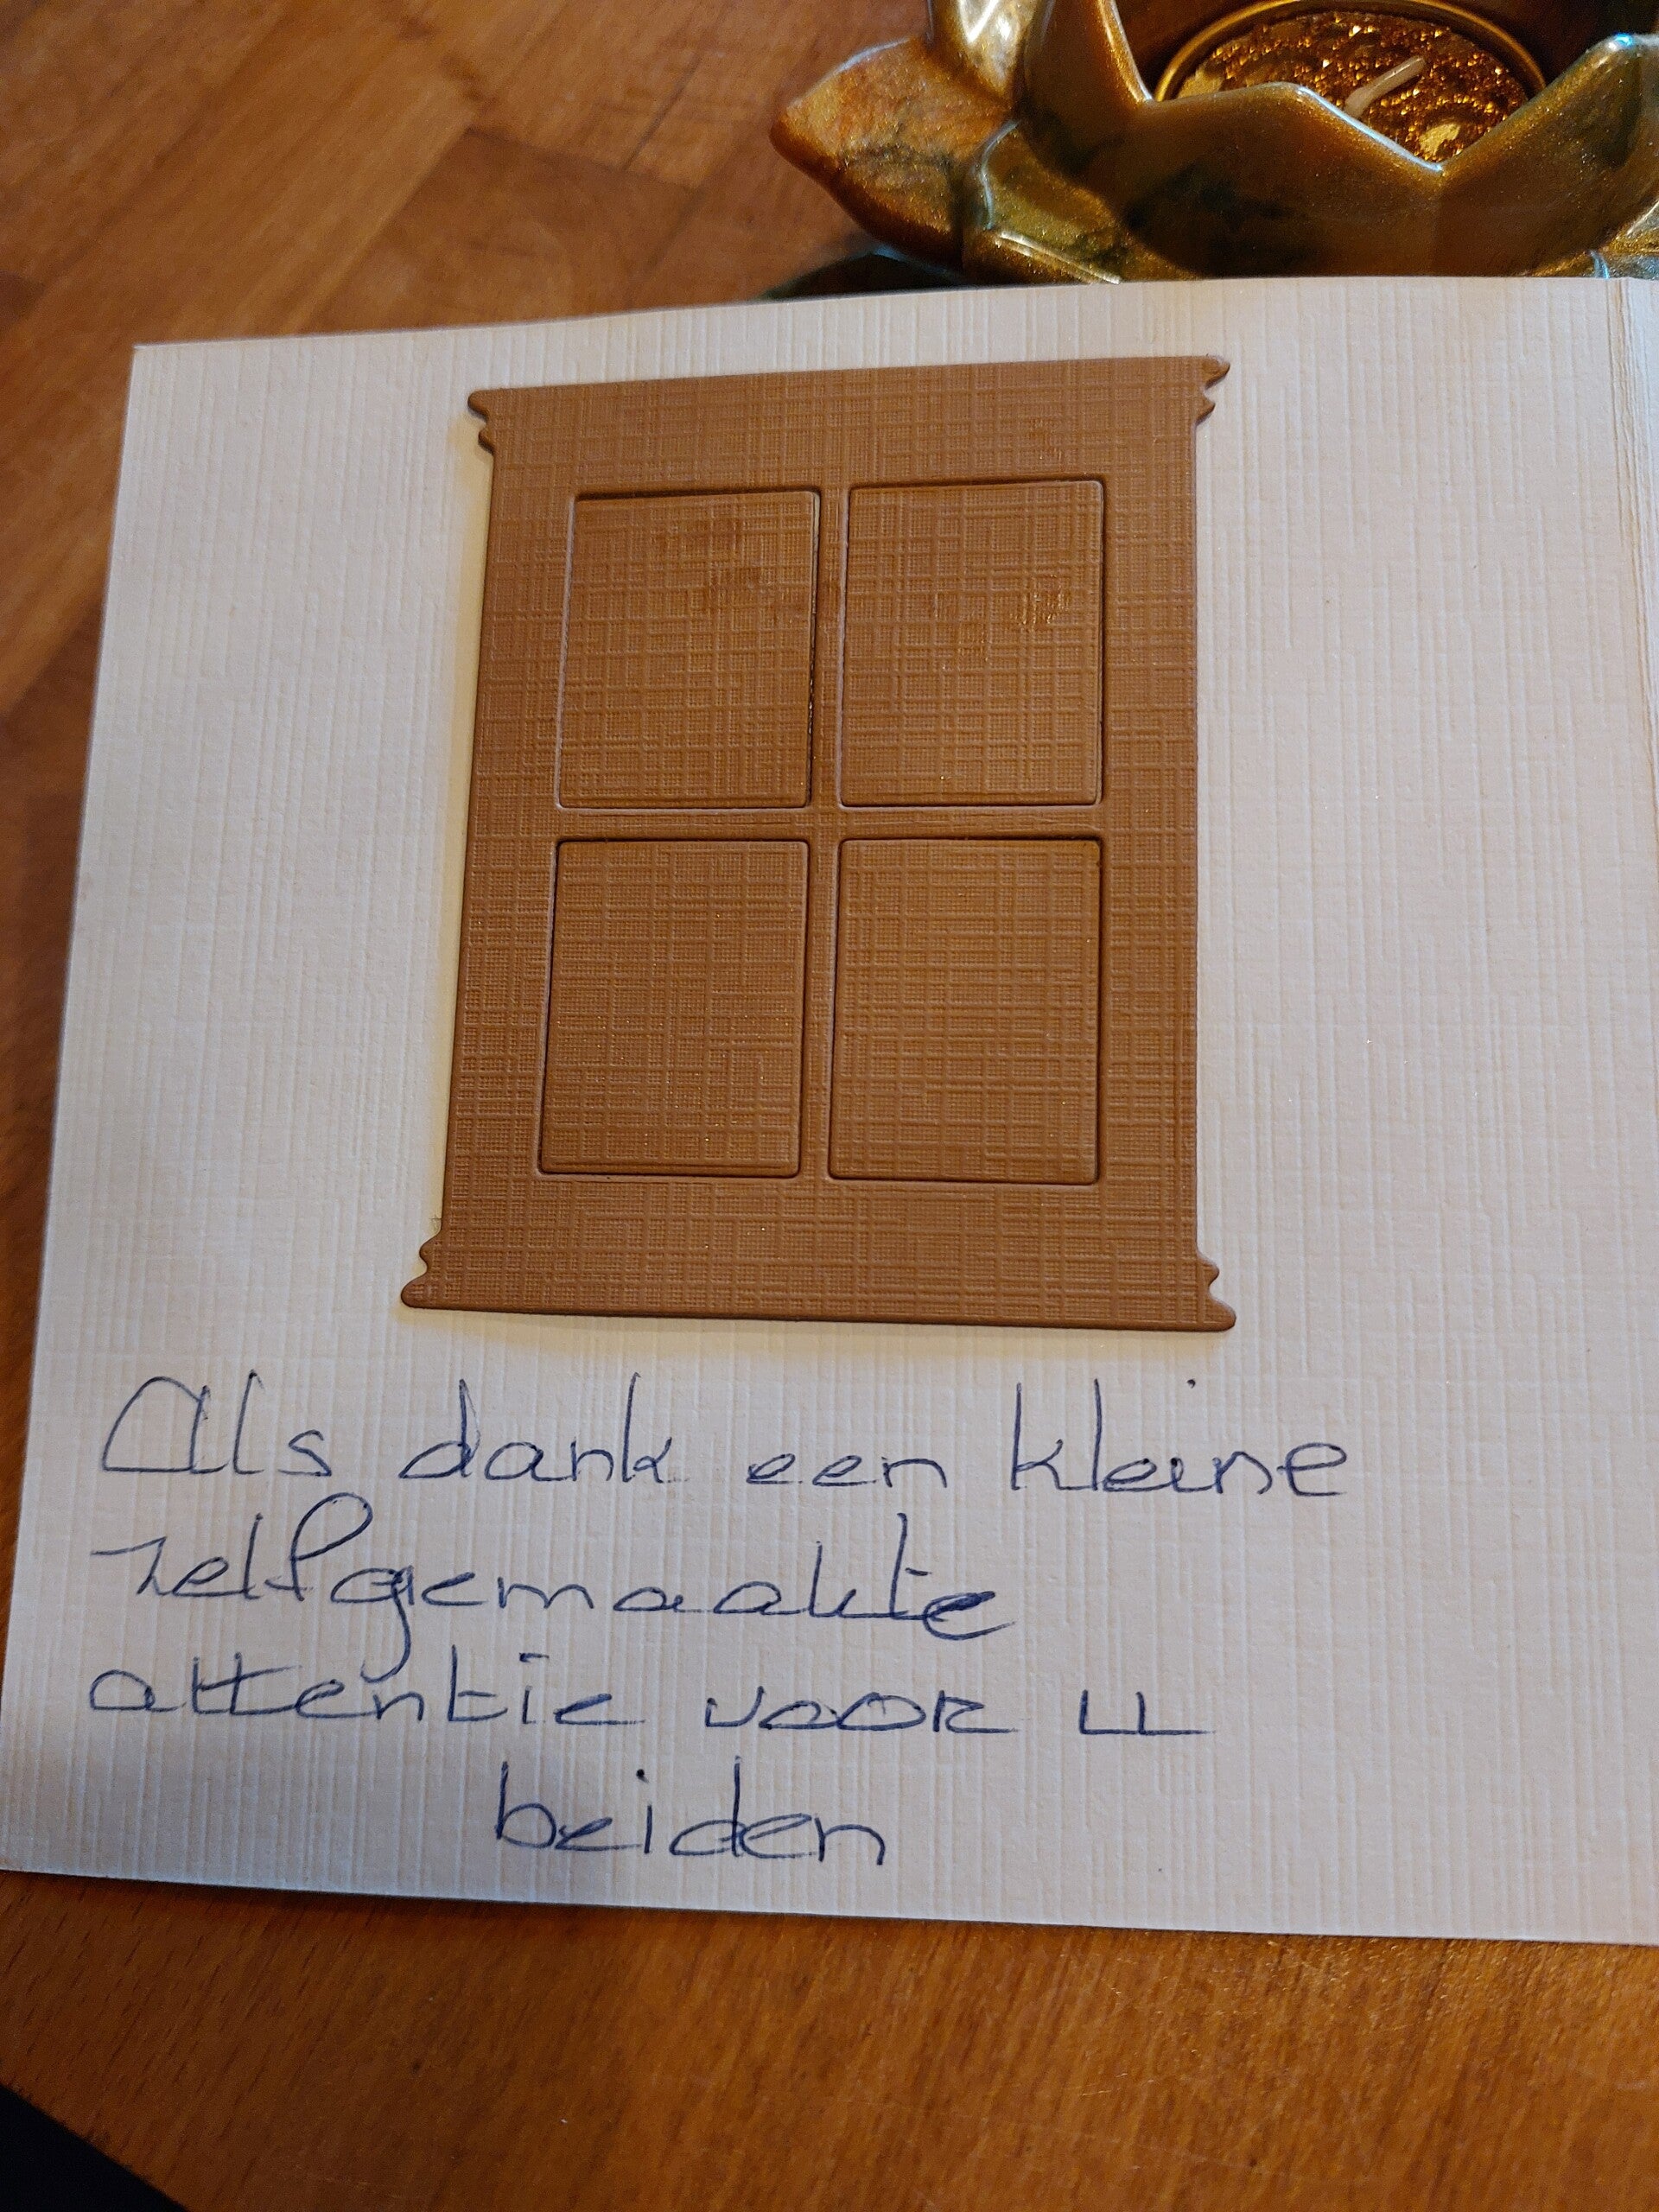 Als dank een kleine
zelfgemaakte
attentie voor U
beiden